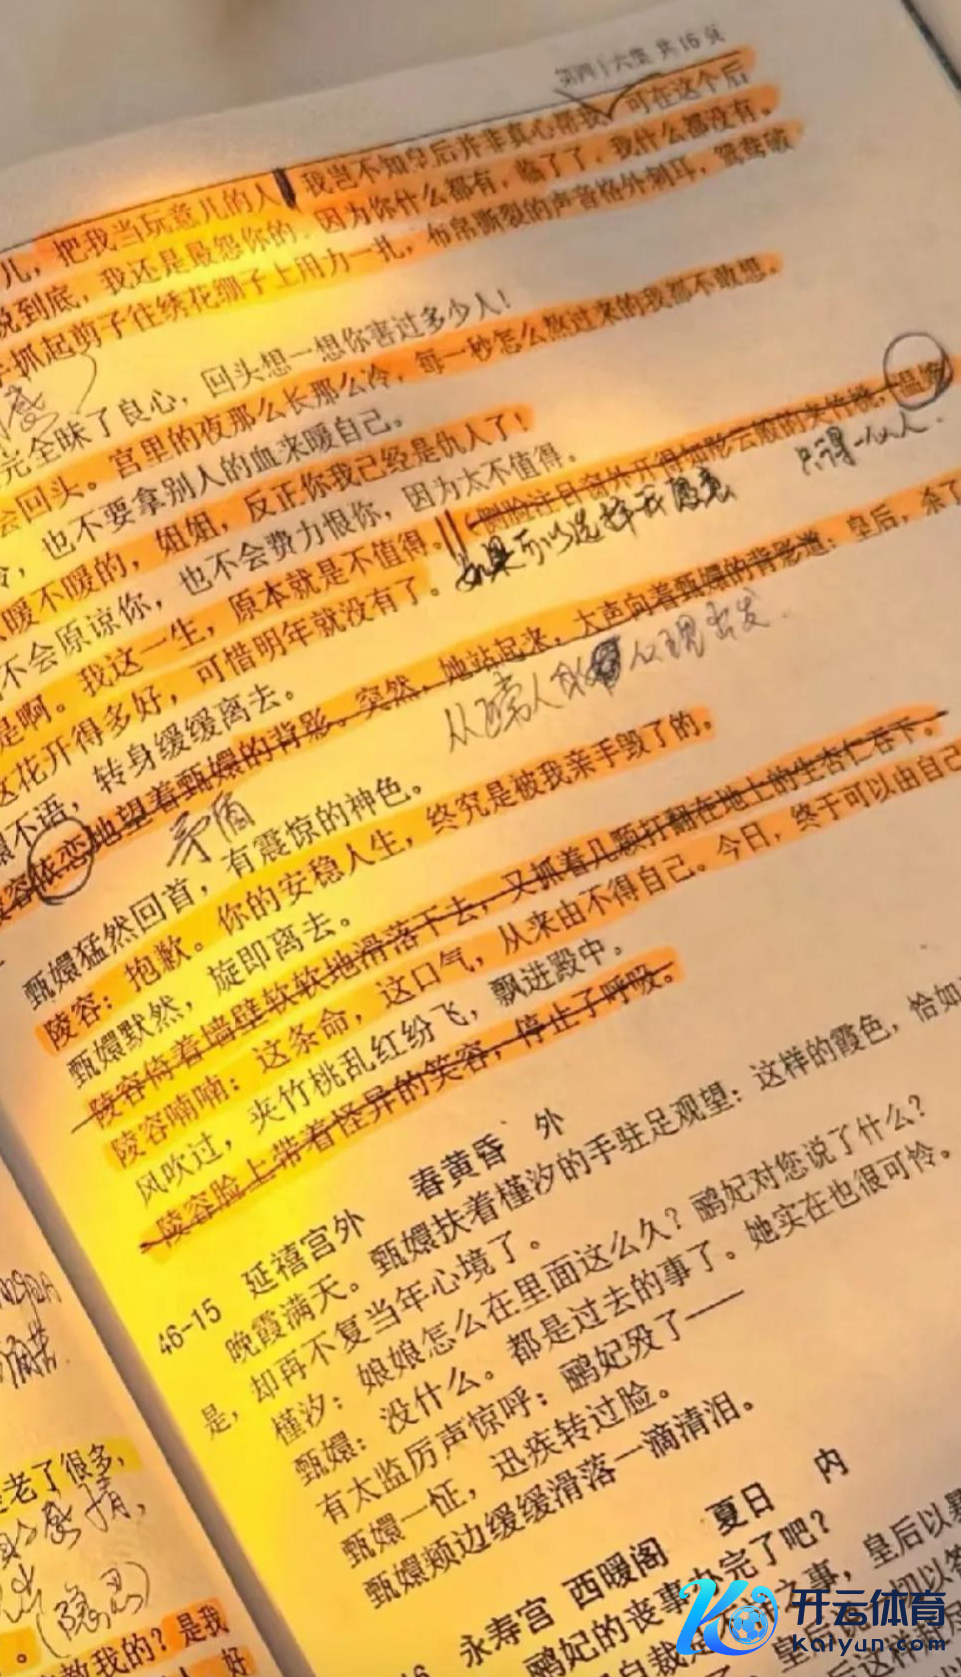 第四十六集 共16页
儿，把我当玩意儿的人 我岂不知皇后并非真心帮我 可在这个后
说到底，我还是最怨你的，因为你什么都有，临了了，我什么都没有。
抓起剪子往绣花绷子上用力一扎，布帛撕裂的声音格外刺耳，鸳鸯破
完全昧了良心，回头想一想你害过多少人！
会回头。宫里的夜那么长那么冷，每一秒怎么熬过来的我都不敢想。
冷，也不要拿别人的血来暖自己。
暖不暖的，姐姐，反正你我已经是仇人了！
不会原谅你，也不会费力恨你，因为太不值得。
是啊。我这一生，原本就是不值得。（侧脸注目窗外开得如彤云般的夹竹桃，温婉
只得一个人.
如果可以选择我愿意
这花开得多好，可惜明年就没有了。
嬛不语，转身缓缓离去。
陵容依恋地望着甄嬛的背影。突然，她站起来，大声向着甄嬛的背影道：皇后，杀了
出发.
矛盾
甄嬛猛然回首，有震惊的神色。
陵容：抱歉。你的安稳人生，终究是被我亲手毁了的。
甄嬛默然，旋即离去。
陵容倚着墙壁软软地滑落下去，又抓着几颗打翻在地上的生杏仁吞下。
陵容喃喃：这条命，这口气，从来由不得自己。今日，终于可以由自己
风吹过，夹竹桃乱红纷飞，飘进殿中。
陵容脸上带着怪异的笑容，停止了呼吸。
46-15 延禧宫外 春黄昏 外
晚霞满天。甄嬛扶着槿汐的手驻足观望：这样的霞色，恰如
是，却再不复当年心境了。
槿汐：娘娘怎么在里面这么久？鹂妃对您说了什么？
甄嬛：没什么。都是过去的事了。她实在也很可怜。
有太监厉声惊呼：鹂妃殁了——
甄嬛一怔，迅疾转过脸。
甄嬛颊边缓缓滑落一滴清泪。
永寿宫 西暖阁 夏日 内
鹂妃的丧事办完了吧？
之事，皇后以暴
老了很多，
教我的？是我
开云体育
kaiyun.com